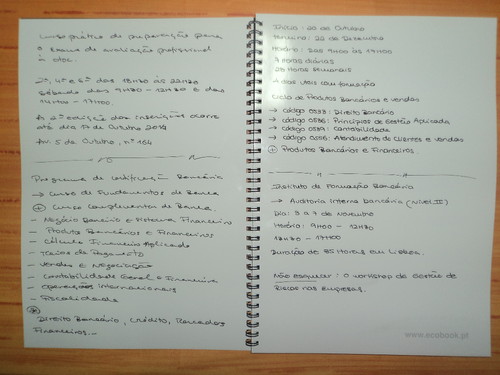 Curso prático de preparação para
o Exame de avaliação profissional
à OTOC.
2ª, 4ª e 6ª das 18H30 às 22H30
Sábado das 9H30 - 12H30 e das
14H00 - 17H00.
A 2ª edição das inscrições ocorre
até dia 17 de Outubro 2014
Av. 5 de Outubro, nº 164
Programa de Certificação Bancária
→ Curso de Fundamentos de Banca
+ Curso Complementar de Banca.
- Negócio Bancário e Sistema Financeiro
- Produtos Bancários e Financeiros
- Cálculo Financeiro Aplicado
- Meios de Pagamento
- Vendas e Negociação
- Contabilidade Geral e Financeira
- Operações Internacionais
- Fiscalidade
Direito Bancário, Crédito, Mercados
Financeiros...
Início: 20 de Outubro
Término: 22 de Dezembro
Horário: Das 9H00 às 17H00
7 Horas diárias
Horas semanais
com formação
Ciclo de Produtos Bancários e Vendas
→ código 0537: Direito Bancário
→ código 0536: Princípios de Gestão Aplicada
→ código 0539: Contabilidade
→ código 0556: Atendimento de Clientes e Vendas
+ Produtos Bancários e Financeiros
Instituto de Formação Bancária
→ Auditoria Interna Bancária (NÍVEL II)
Dia: 3 a 7 de Novembro
Horário: 9H00 - 12H30
13H30 - 17H00
Duração de 35 Horas em Lisboa.
Não esquecer: O workshop de Gestão de
Riscos nas Empresas.
www.ecobook.pt